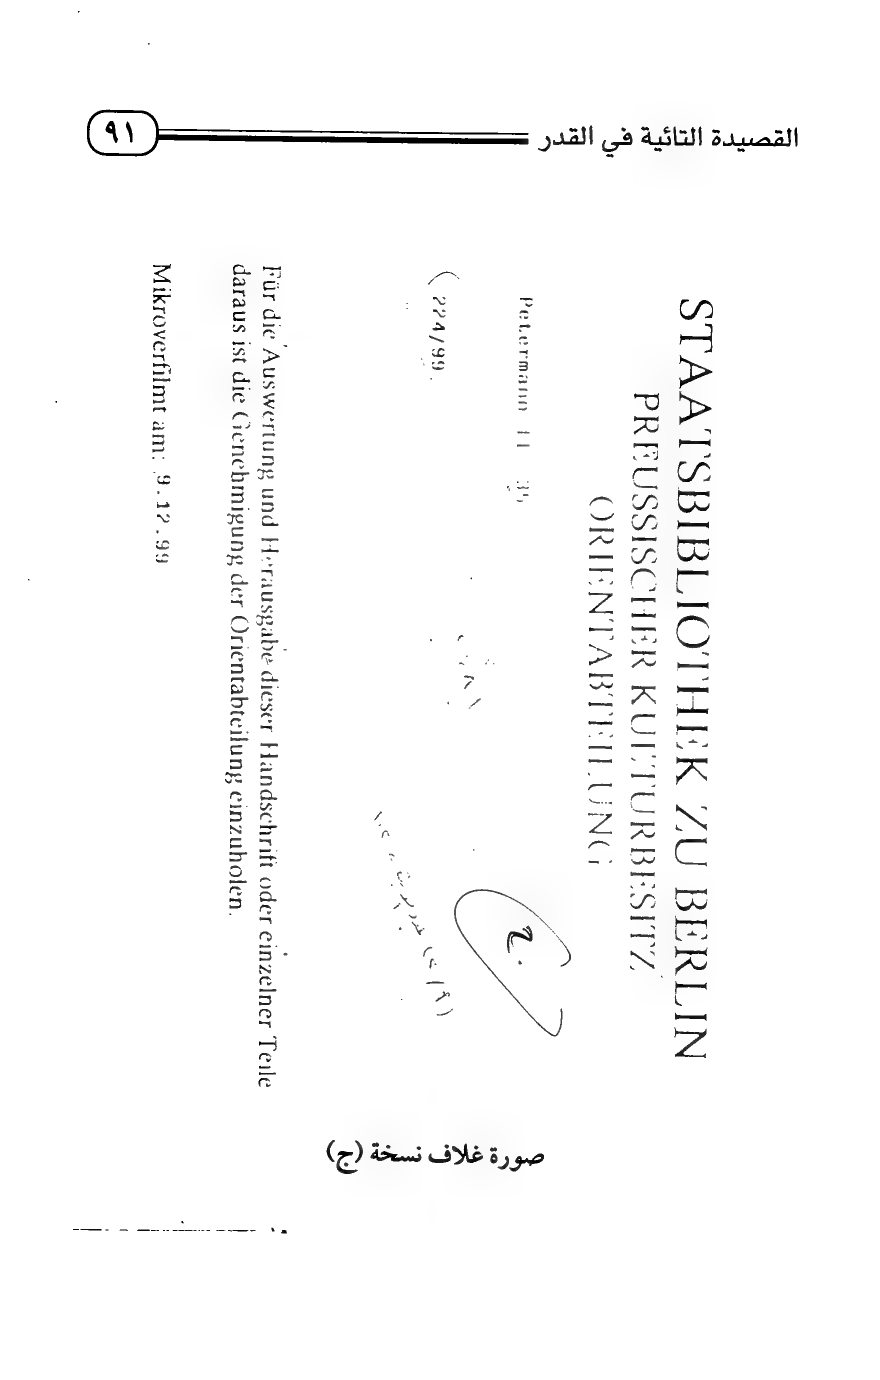 القصيدة التائية في القدر
٩١
STAATSBIBLIOTHEK ZU BERLIN
PREUSSISCHER KULTURBESITZ
ORIENTABTEILUNG
Petermann II 35
ج
224/99
Für die Auswertung und Herausgabe dieser Handschrift oder einzelner Teile
daraus ist die Genehmigung der Orientabteilung einzuholen.
Mikroverfilmt am: 9.12.99
صورة غلاف نسخة (ج)